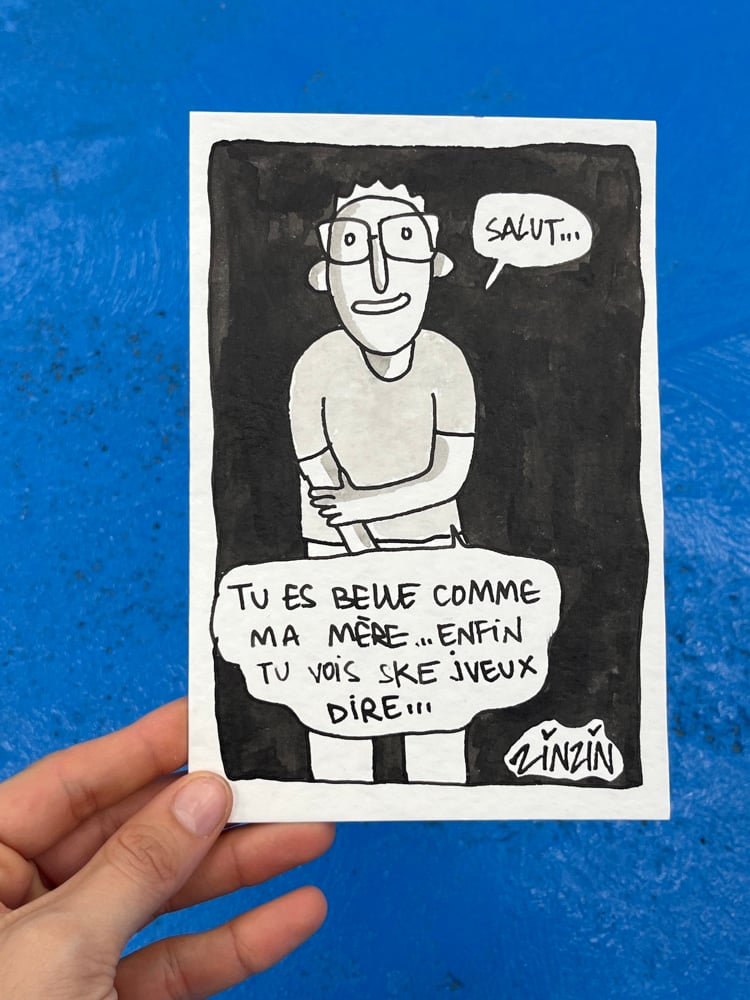 SALUT...
TU ES BELLE COMME
MA MÈRE...ENFiN
TU VOiS SKE JVEUX
DiRE...
ZiNZiN